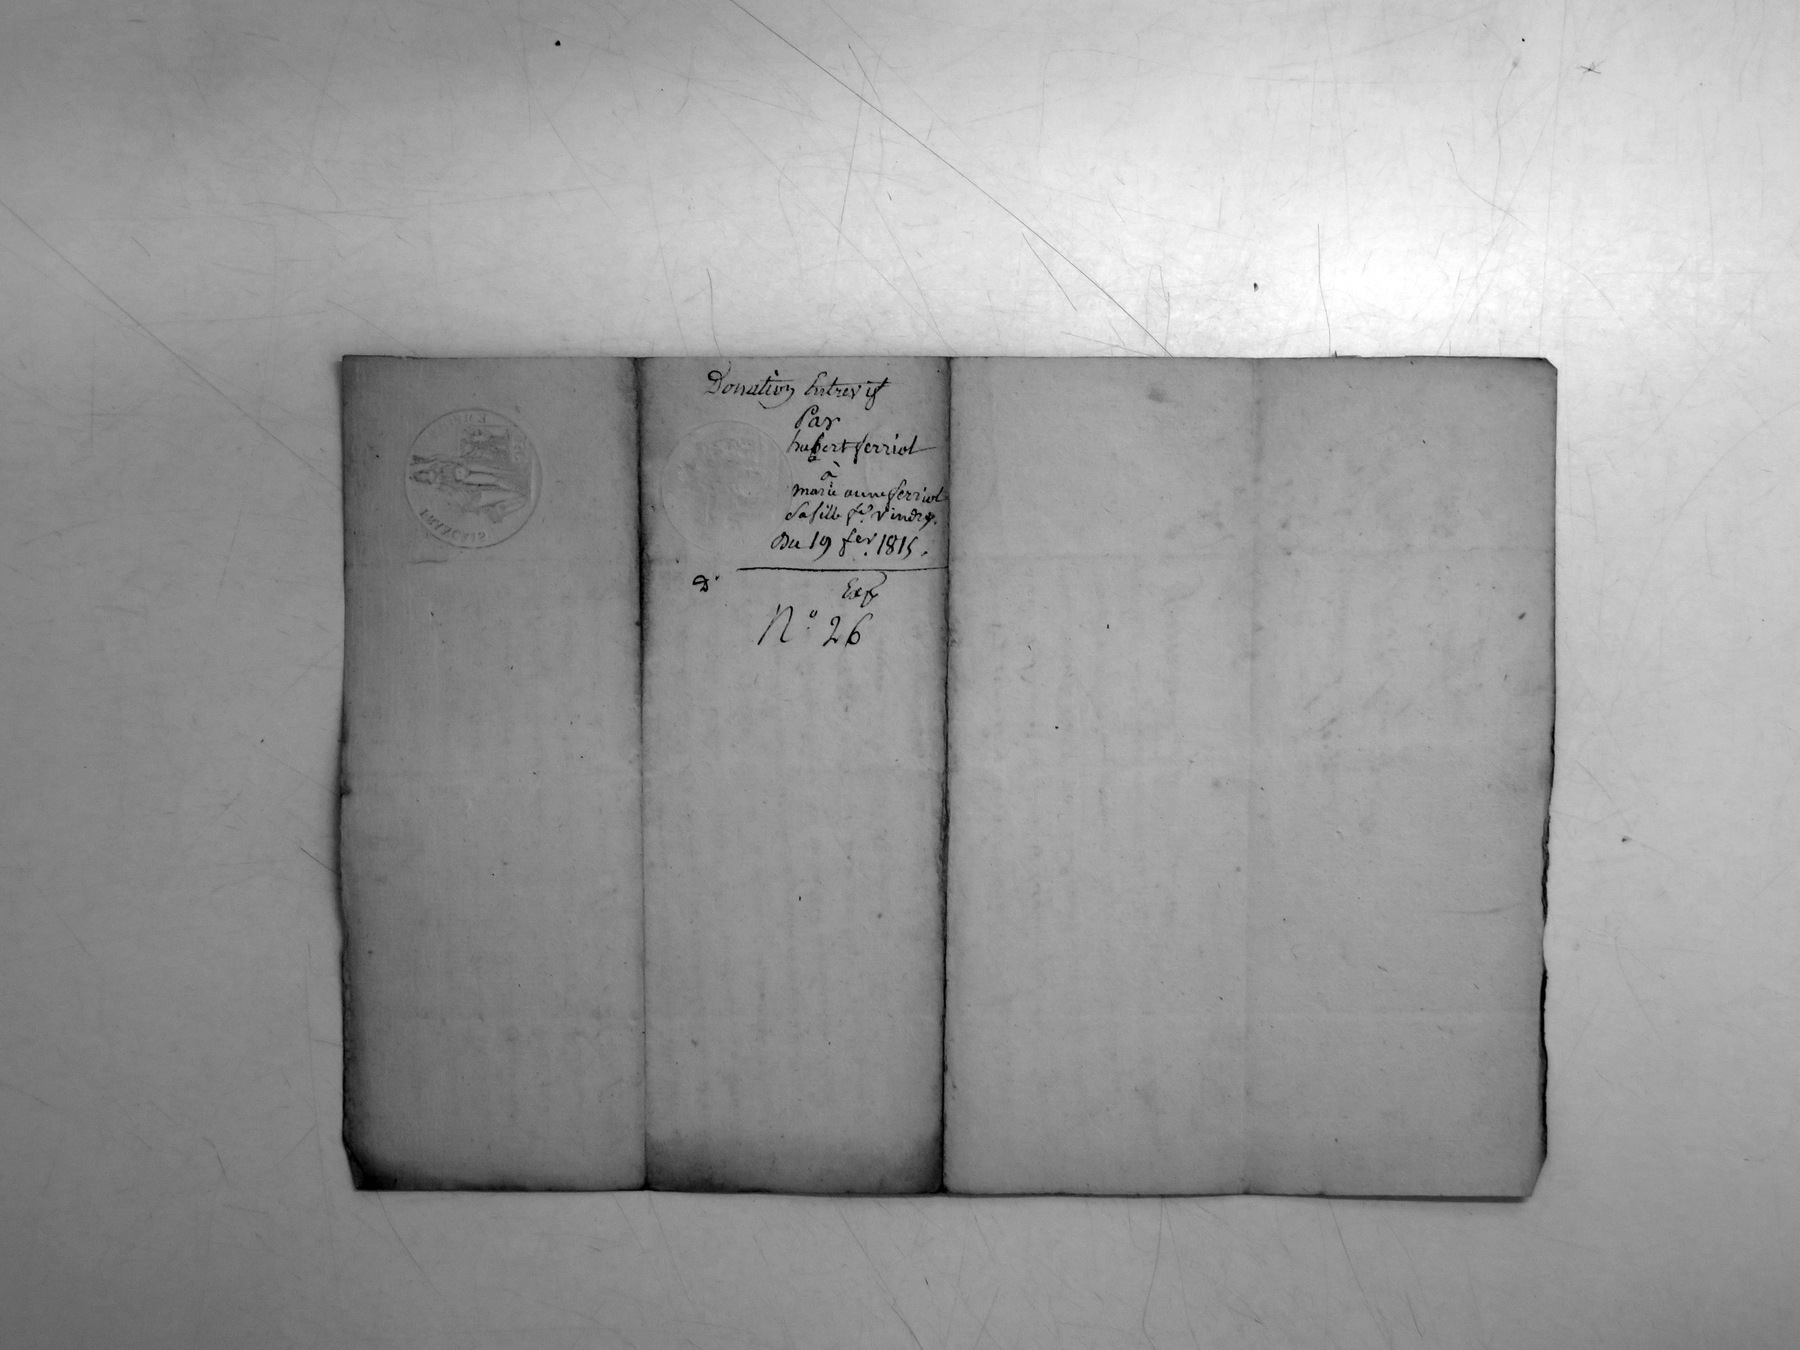 Donation Entrevif
Par
hubert ferriot
à
marie anne ferriot
Sa fille fe. Vindry.
Du 19 fer. 1815.
D.
Exp
N.o 26
FRANCAIS